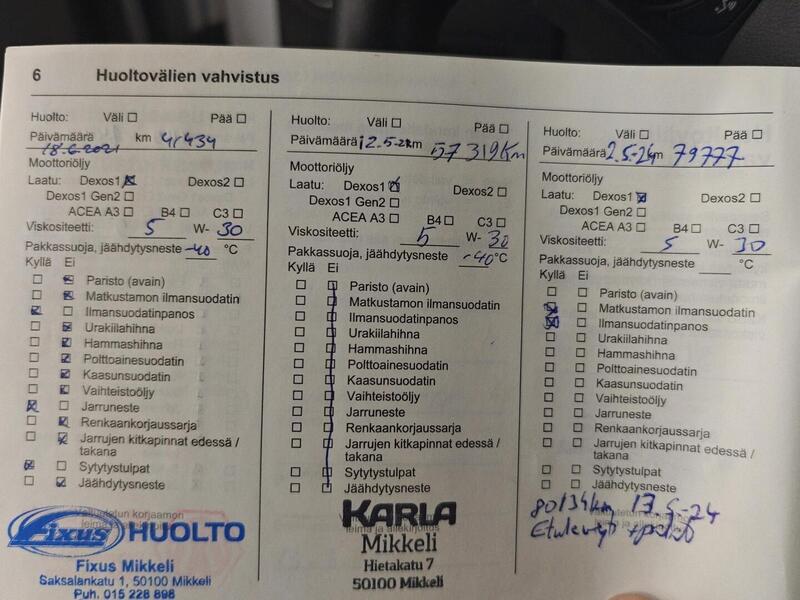 6 Huoltovälien vahvistus
Huolto: Väli ☐ Pää ☐
Päivämäärä km 41434
18.6.2021
Moottoriöljy
Laatu: Dexos1 ☒ Dexos2 ☐
Dexos1 Gen2 ☐
ACEA A3 ☐ B4 ☐ C3 ☐
Viskositeetti: 5 W- 30
Pakkassuoja, jäähdytysneste -40 °C
Kyllä Ei
☐ ☒ Paristo (avain)
☐ ☒ Matkustamon ilmansuodatin
☒ ☐ Ilmansuodatinpanos
☐ ☒ Urakiilahihna
☐ ☒ Hammashihna
☐ ☒ Polttoainesuodatin
☐ ☒ Kaasunsuodatin
☐ ☒ Vaihteistoöljy
☒ ☐ Jarruneste
☐ ☒ Renkaankorjaussarja
☐ ☒ Jarrujen kitkapinnat edessä /
takana
☒ ☐ Sytytystulpat
☐ ☒ Jäähdytysneste
Valtuutetun korjaamon
Fixus HUOLTO
Fixus Mikkeli
Saksalankatu 1, 50100 Mikkeli
Puh. 015 228 898
Huolto: Väli ☐ Pää ☐
Päivämäärä 12.5-22 km 57319Km
Moottoriöljy
Laatu: Dexos1 ☒ Dexos2 ☐
Dexos1 Gen2 ☐
ACEA A3 ☐ B4 ☐ C3 ☐
Viskositeetti: 5 W- 30
Pakkassuoja, jäähdytysneste -40 °C
Kyllä Ei
☐ ☐ Paristo (avain)
☐ ☐ Matkustamon ilmansuodatin
☐ ☐ Ilmansuodatinpanos
☐ ☐ Urakiilahihna
☐ ☐ Hammashihna
☐ ☐ Polttoainesuodatin
☐ ☐ Kaasunsuodatin
☐ ☐ Vaihteistoöljy
☐ ☐ Jarruneste
☐ ☐ Renkaankorjaussarja
☐ ☐ Jarrujen kitkapinnat edessä /
takana
☐ ☐ Sytytystulpat
☐ ☐ Jäähdytysneste
KARLA
leima ja allekirjoitus
Mikkeli
Hietakatu 7
50100 Mikkeli
Huolto: Väli ☐ Pää ☐
Päivämäärä 2.5-24 km 79777
Moottoriöljy
Laatu: Dexos1 ☒ Dexos2 ☐
Dexos1 Gen2 ☐
ACEA A3 ☐ B4 ☐ C3 ☐
Viskositeetti: 5 W- 30
Pakkassuoja, jäähdytysneste °C
Kyllä Ei
☐ ☐ Paristo (avain)
☒ ☐ Matkustamon ilmansuodatin
☒ ☐ Ilmansuodatinpanos
☐ ☐ Urakiilahihna
☐ ☐ Hammashihna
☐ ☐ Polttoainesuodatin
☐ ☐ Kaasunsuodatin
☐ ☐ Vaihteistoöljy
☐ ☐ Jarruneste
☐ ☐ Renkaankorjaussarja
☐ ☐ Jarrujen kitkapinnat edessä /
takana
☐ ☐ Sytytystulpat
☐ ☐ Jäähdytysneste
80134km 17.5-24
Valtuutetun korjaamon
leima ja allekirjoitus